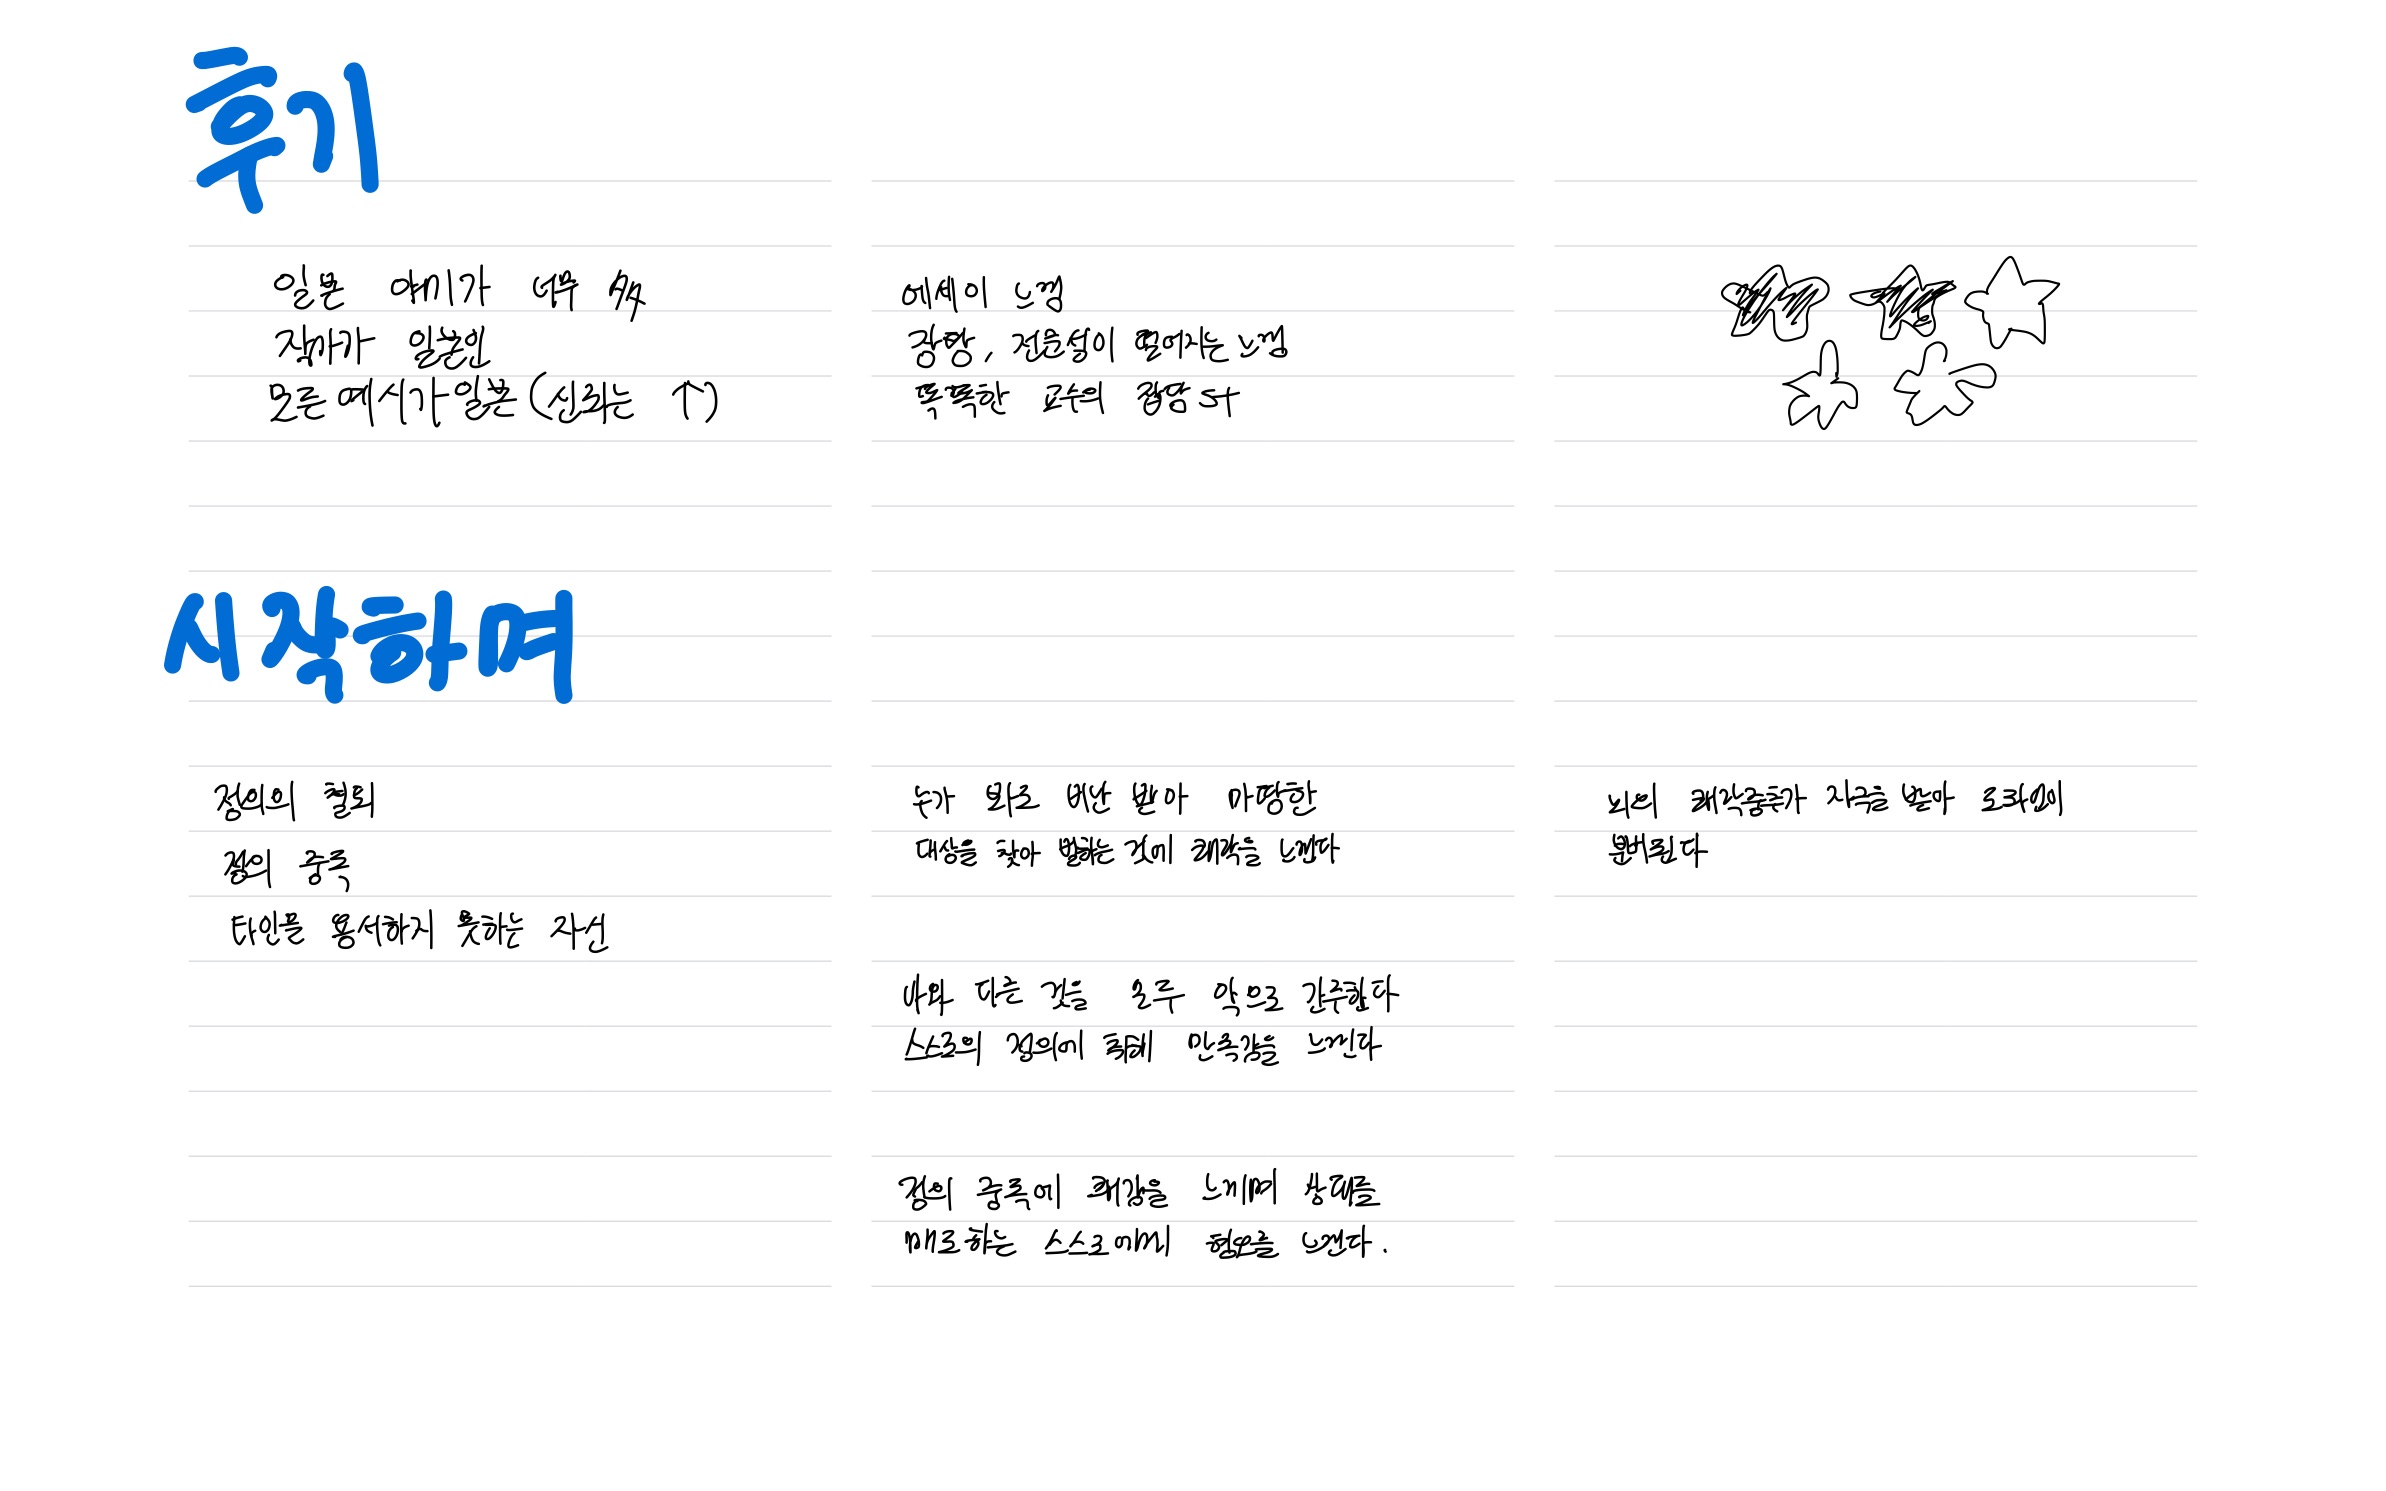 후기
일본 얘기가 너무 多
작가가 일본인
모든 예시가 일본 (신뢰는 ↑)
에세이 느낌
장황, 전문성이 떨어지는 느낌
똑똑한 교수의 잡담 st
시작하며
정의의 철퇴
정의 중독
타인을 용서하지 못하는 자신
누가 봐도 비난 받아 마땅한
대상을 찾아 벌하는 것에 쾌락을 느낀다
나와 다른 것을 모두 악으로 간주한다
스스로의 정의에 취해 만족감을 느낀다
정의 중독에 쾌감을 느끼며 상대를
매도하는 스스로에게 혐오를 느낀다.
뇌의 쾌락중추가 자극을 받아 도파민이
분비된다